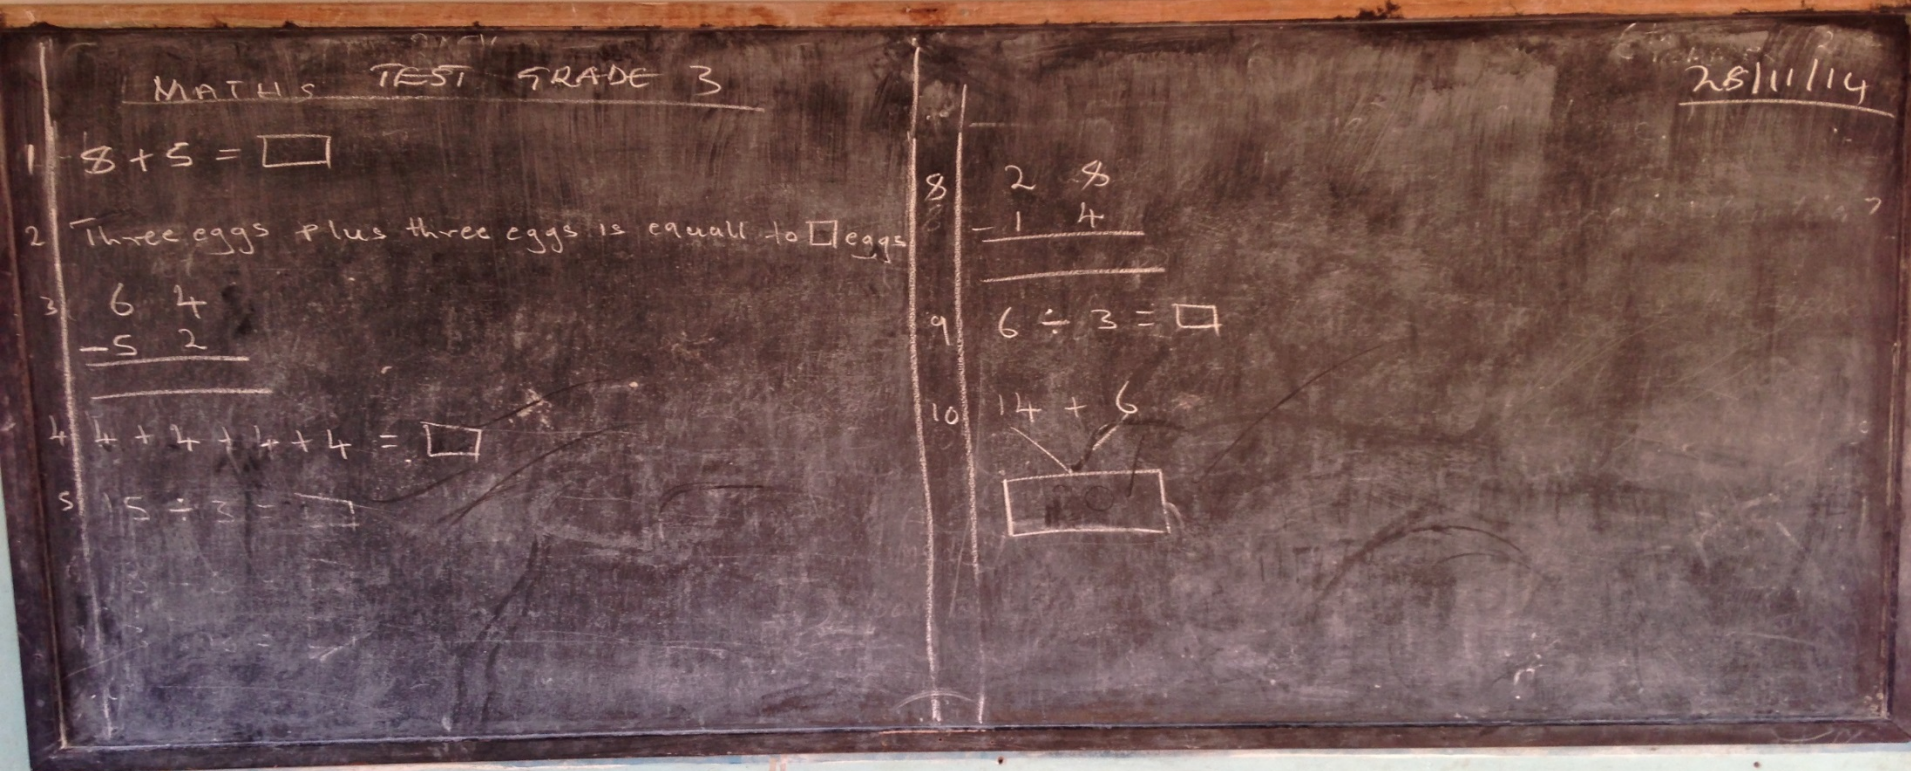 MATHS TEST GRADE 3
28/11/14
1 8 + 5 = □
2 Three eggs plus three eggs is equall to □ eggs
3 6 4
- 5 2
4 4 + 4 + 4 + 4 = □
5 15 ÷ 3 = □
8 2 8
- 1 4
9 6 ÷ 3 = □
10 14 + 6